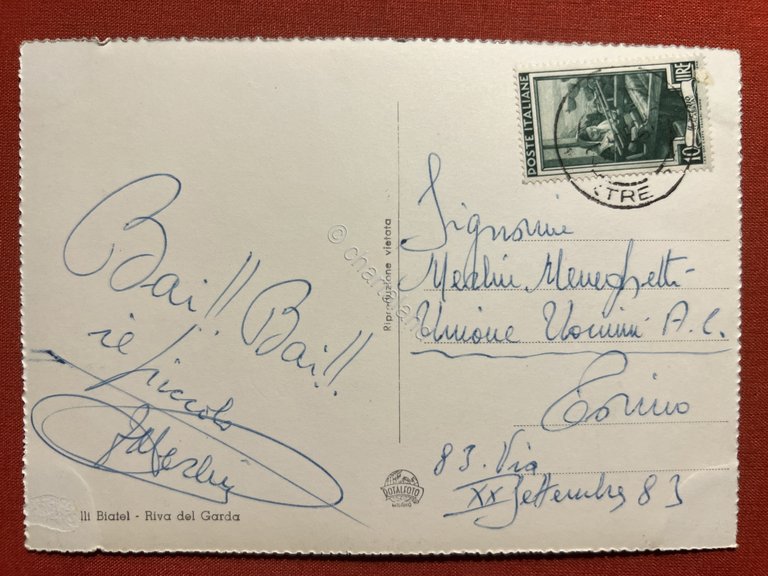 Bai!! Bai!!
il piccolo
Merlin
POSTE ITALIANE
LIRE
10
TRE
Riproduzione vietata
Signorine
Merlin Meneghetti
Unione Uomini A.C.
Torino
83. Via
XX Settembre 83
ROTALFOTO
MILANO
lli Biatel - Riva del Garda